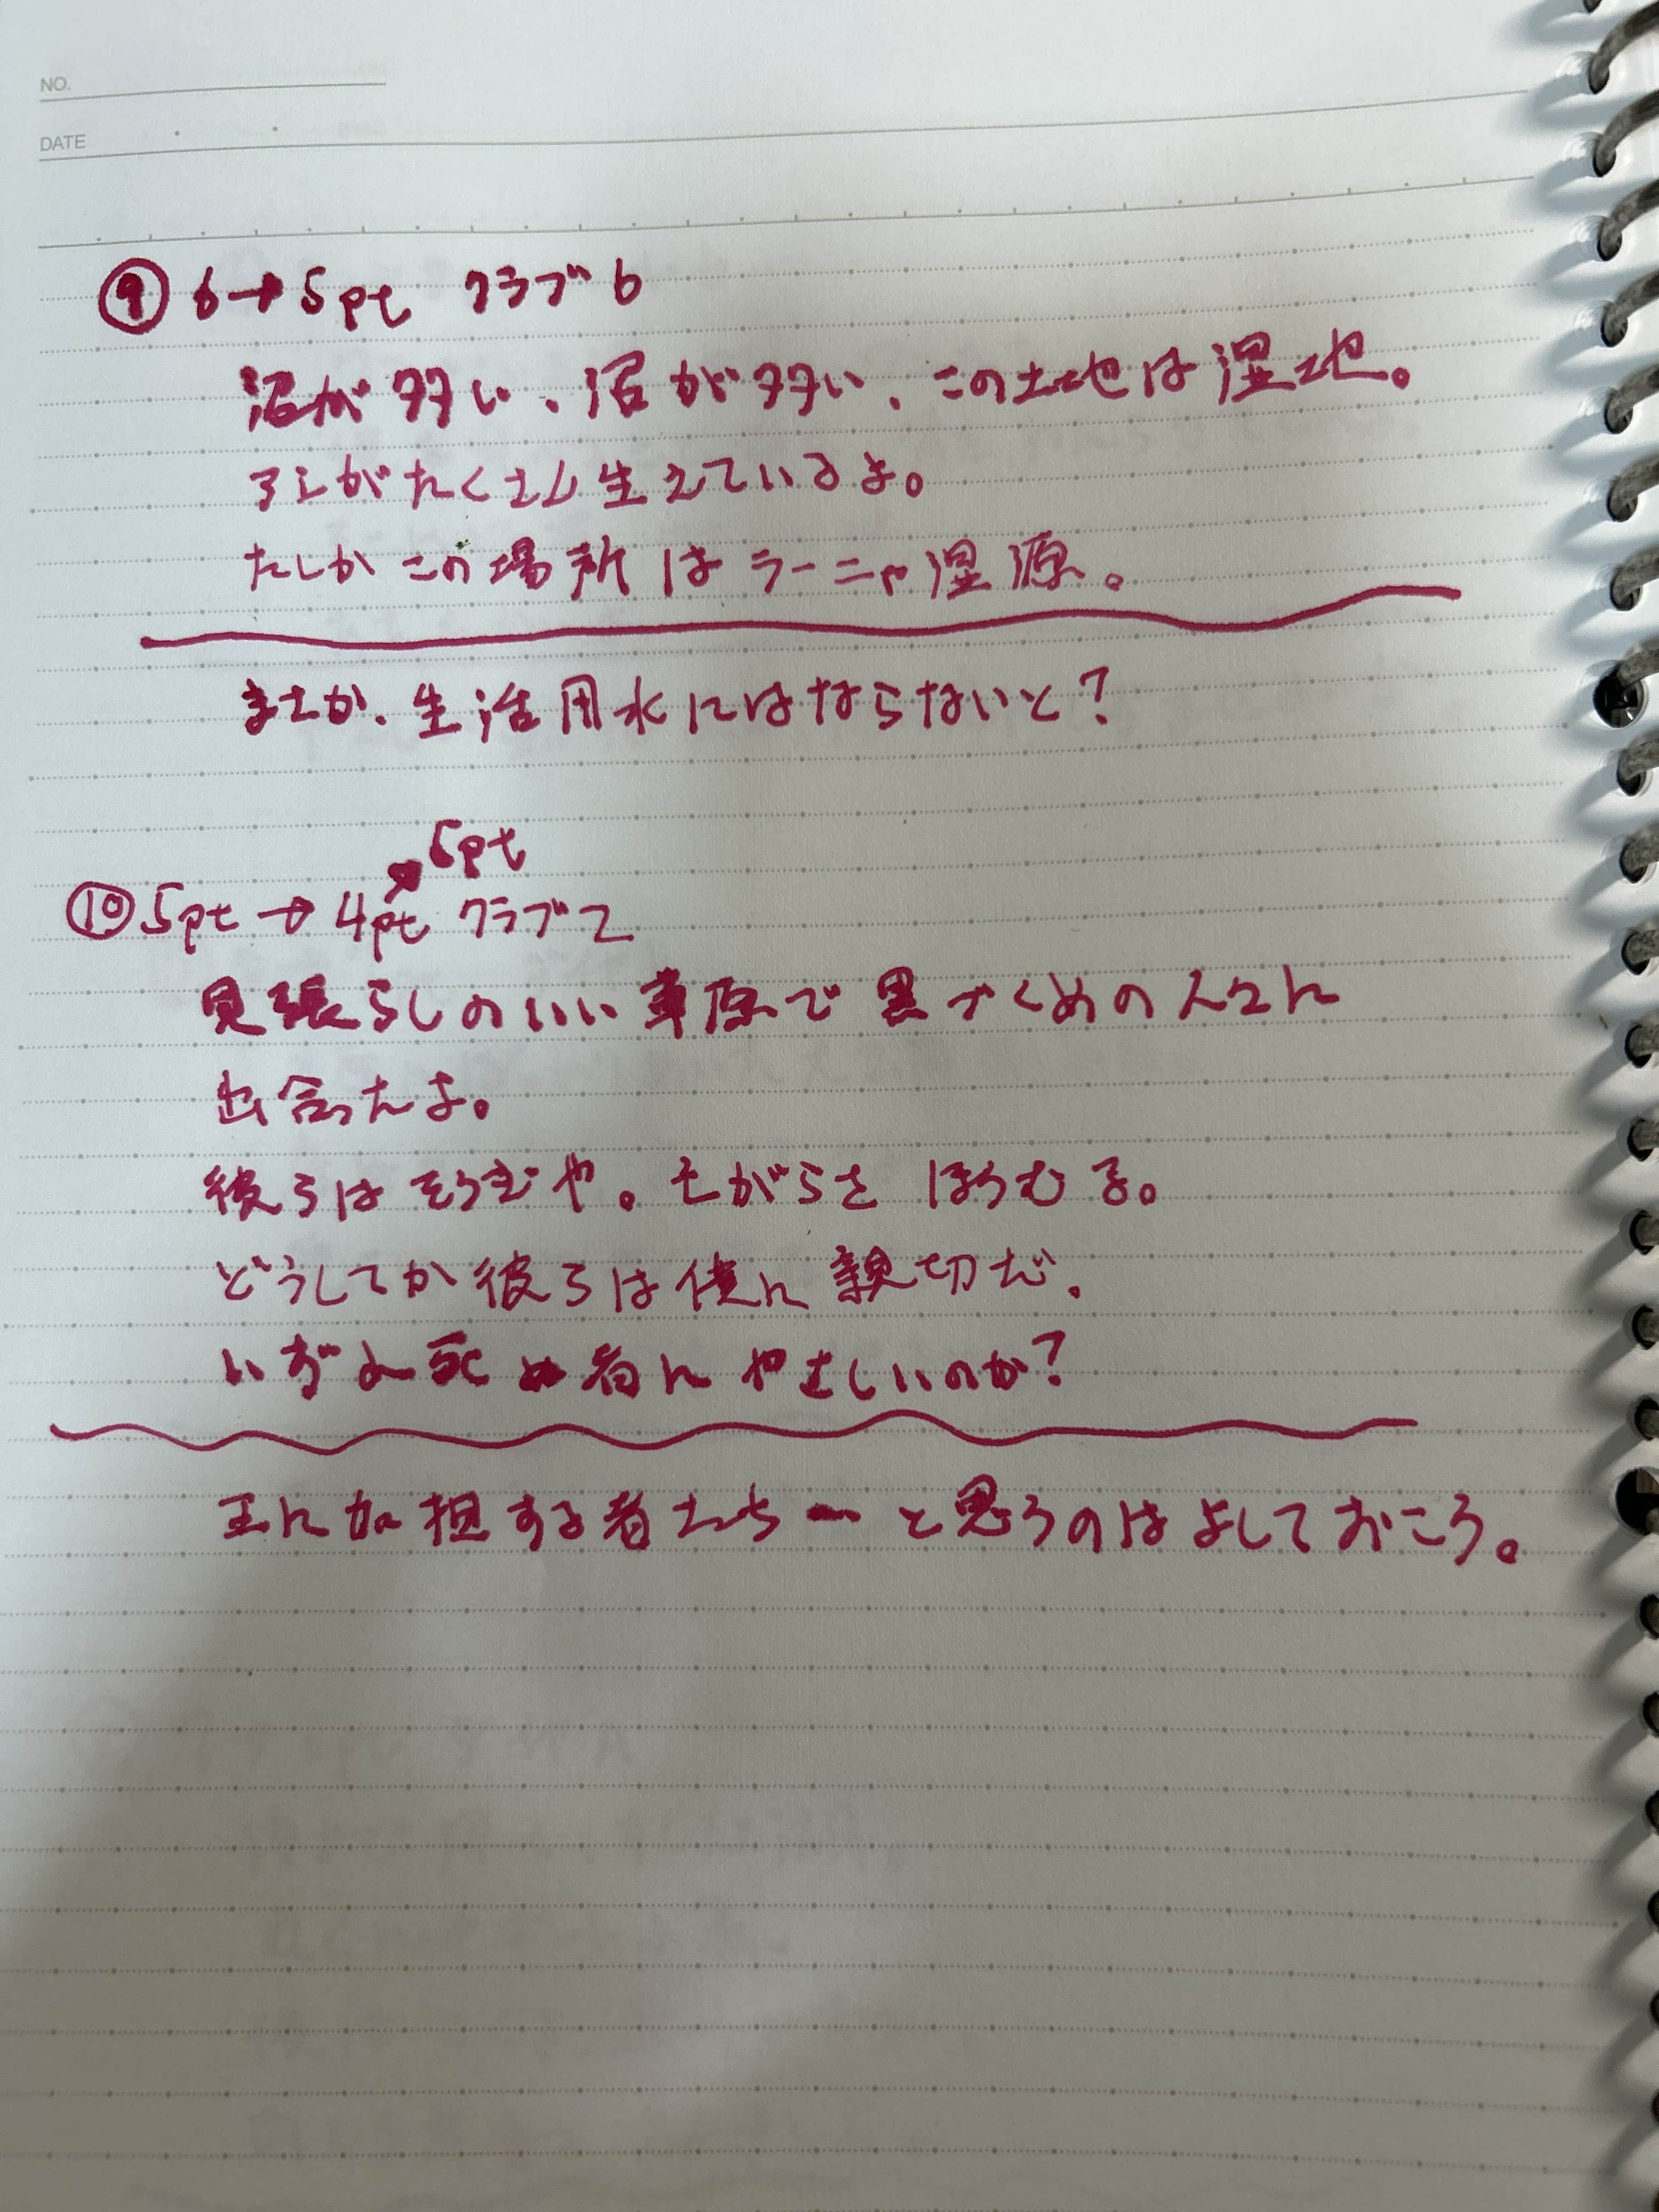 NO.
DATE
⑨ 6→5pt クラブ6
沼が多い、沼が多い、この土地は湿地。
アシがたくさん生えているよ。
たしかこの場所はラーニャ湿源。
まさか、生活用水にはならないと?
5pt
⑩ 5pt→4pt クラブ2
見張らしのいい草原で黒づくめの人々に
出会ったよ。
彼らはそうぎや。なきがらを ほうむる。
どうしてか彼らは僕に親切だ。
いずれ死ぬ者にやさしいのか?
王に加担する者たち ー と思うのはよしておこう。